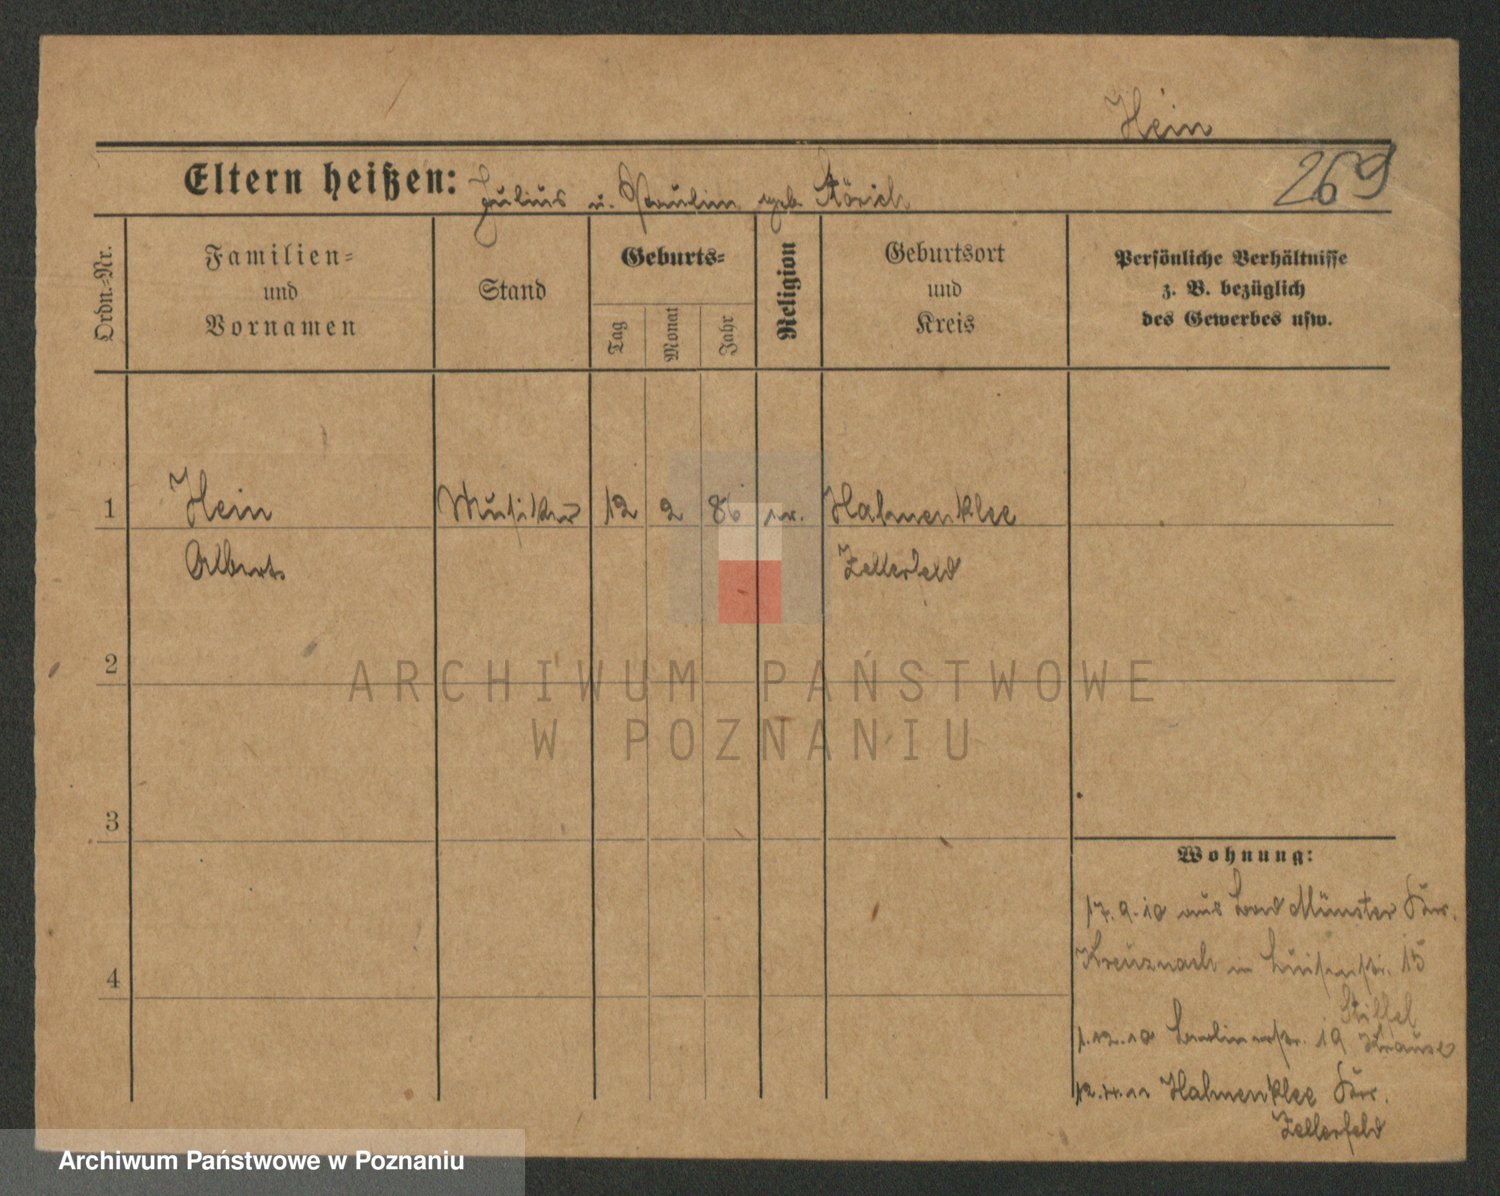 Hein
269
Eltern heißen: Julius u. Paulin geb.
Ordn.-Nr.
Familien-
und
Vornamen
Stand
Geburts-
Tag
Monat
Jahr
Religion
Geburtsort
und
Kreis
Persönliche Verhältnisse
z. B. bezüglich
des Gewerbes usw.
1 Hein Musiker 12 2 86 Hahnenklee
Albert Zellerfeld
2
ARCHIWUM PAŃSTWOWE
W POZNANIU
3
Wohnung:
17.9.10 aus Bad Münster
4
Kreuznach in Luisenstr. 15
1.12.10 Berlinerstr. 19 Krause
Hahnenklee
Zellerfeld
Archiwum Państwowe w Poznaniu